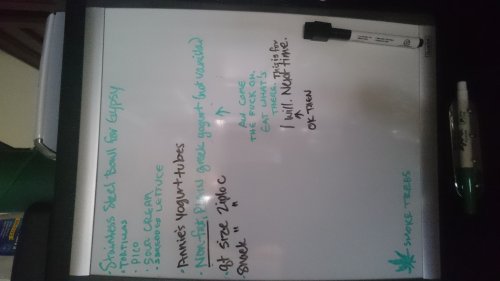 Stainless Steel Bowl for Gypsy
• TORTILLAS
• PICO
• SOUR CREAM
• SHREDDED LETTUCE
• Annie's Yogurt tubes
• Non-fat, Plain greek yogurt (not vanilla)
↑
AW COME
THE FUCK ON.
EAT WHAT'S
THERE. This is for
I will. Next time.
↑
OK THEN
• qt size Ziploc
• Snack " "
SMOKE TREES